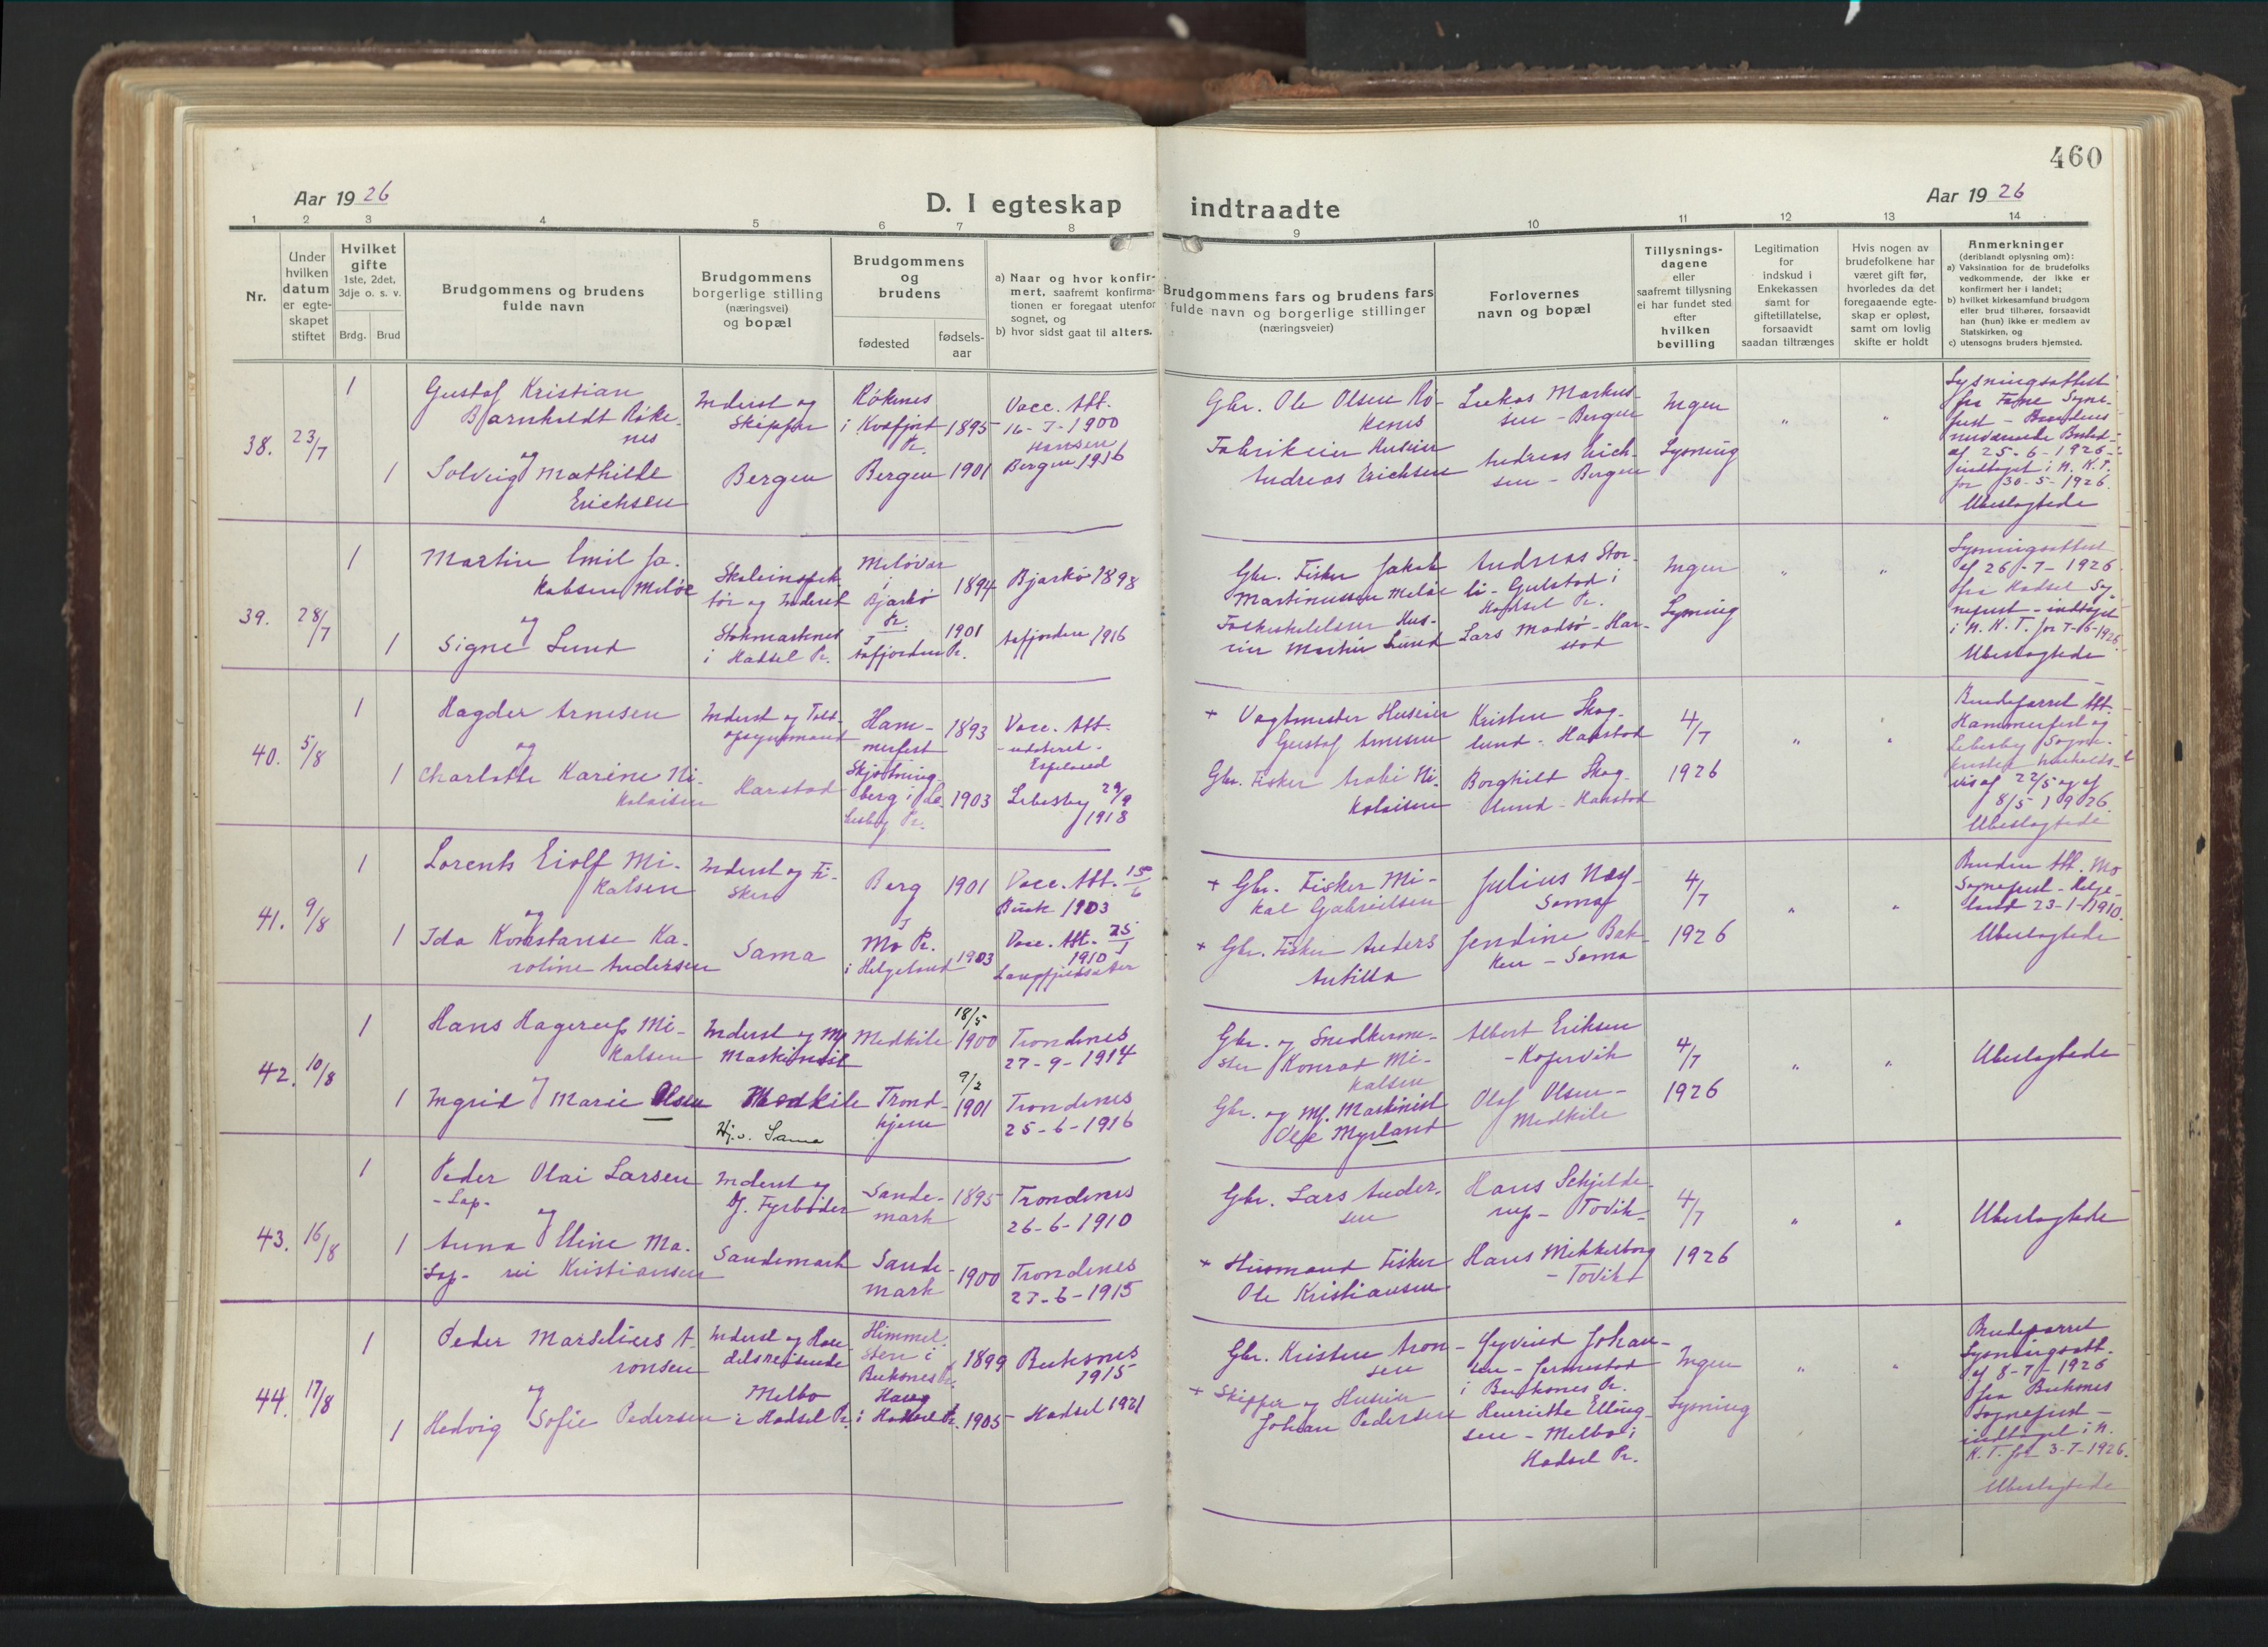 460
Aar 1926
D. I egteskap indtraadte
Aar 1926
1 2 3 4 5 6 7 8 9 10 11 12 13 14
Nr.
Under hvilken datum er egteskapet stiftet
Hvilket gifte 1ste, 2det, 3dje o. s. v.
Brdg. Brud
Brudgommens og brudens fulde navn
Brudgommens borgerlige stilling (næringsvei) og bopæl
Brudgommens og brudens
fødested
fødsels-aar
a) Naar og hvor konfirmert, saafremt konfirmationen er foregaat utenfor sognet, og
b) hvor sidst gaat til alters.
Brudgommens fars og brudens fars fulde navn og borgerlige stillinger (næringsveier)
Forlovernes navn og bopæl
Tillysningsdagene eller saafremt tillysning ei har fundet sted efter hvilken bevilling
Legitimation for indskud i Enkekassen samt for giftetillatelse, forsaavidt saadan tiltrænges
Hvis nogen av brudefolkene har været gift før, hvorledes da det foregaaende egteskap er opløst, samt om lovlig skifte er holdt
Anmerkninger (deriblandt oplysning om):
a) Vaksination for de brudefolks vedkommende, der ikke er konfirmert her i landet;
b) hvilket kirkesamfund brudgom eller brud tilhører, forsaavidt han (hun) ikke er medlem av Statskirken, og
c) utensogns bruders hjemsted.
38. 23/7
1 Gustaf Kristian Bjarnholdt Røkenes
og
1 Solveig Mathilde Erichsen
Inderst og Skipper
Bergen
Røkenes i Kvæfjord Pr. 1895
Bergen 1901
Vacc. Att. 16-7-1900 Hansen
Bergen 1916
Gbr. Ole Olsen Røkenes
Fabrikeier Huseier Andreas Erichsen
Lukas Markussen - Bergen
Andreas Erichsen - Bergen
Ingen Lysning
" "
Lysningsattest fra Fane Sognefust - Brudens nuværende Bosted - af 25-6-1926 - indtaget i N. K. T. for 30-5-1926.
Ubeslægtede
39. 28/7
1 Martin Emil Jakobsen Meløe
og
1 Signe Lund
Skoleinspektør og Inderst
Stokmarknes i Hadsel Pr.
Meløvær i Bjarkø Pr. 1894
Aafjorden Pr. 1901
Bjarkø 1898
Aafjorden 1916
Gbr. Fisker Jakob Martinussen Meløe
Huseier Martin Lund
Andreas Storli - Gulstad i Hadsel Pr.
Lars Madsø - Harstad
Ingen Lysning
" "
Lysningsattest af 26-7-1926 fra Hadsel Sognefust - indtaget i N. K. T. for 7-6-1926.
Ubeslægtede
40. 5/8
1 Hagder Arnesen
og
1 Charlotte Karine Nikolaisen
Inderst og Toldopsynsmand
Harstad
Hammerfest 1893
Skjøtningberg i Lebesby Pr. 1903
Vacc. Att. - udateret - Espeland
Lebesby 29/9 1918
+ Vagtmester Huseier Gustaf Arnesen
Gbr. Fisker Arabi Nikolaisen
Kristen Skoglund - Harstad
Borghild Skoglund - Harstad
4/7 1926
" "
Brudeparret Att. Hammerfest og Lebesby Sogne- af 22/5 og af 8/5 1926.
Ubeslægtede
41. 9/8
1 Lorents Eiolf Mikalsen
og
1 Ida Konstanse Karoline Andersen
Inderst og Fisker
Sama
Berg 1901
Mo Pr. i Helgeland 1903
Vacc. Att. 15/6 1903
Vacc. Att. 25/1 1910
+ Gbr. Fisker Mikal Gabrielsen
+ Gbr. Fisker Anders Antilla
Julius Næs - Sama
Jendine Bakken - Sama
4/7 1926
" "
Bruden Att. Mo Sognefust - Helgeland 23-1-1910.
Ubeslægtede
42. 10/8
1 Hans Hagerup Mikalsen
og
1 Ingrid Marie Olsen
Inderst og Mf. Maskinist
Medkile
Hj.v. Sama
Medkile 18/5 1900
Trondhjem 9/2 1901
Trondenes 27-9-1914
Trondenes 25-6-1916
Gbr. og Snedkermester Konrad Mikalsen
Gbr. og Mf. Maskinist Ole Myrland
Albert Eriksen - Kopervik
Olaf Olsen - Medkile
4/7 1926
" "
Ubeslægtede
43. 16/8
1 Peder Olai Larsen
- Lap -
og
1 Anna Eline Marie Kristiansen
- Lap -
Inderst og Df. Fyrbøder
Sandemark
Sandemark 1895
Sandemark 1900
Trondenes 26-6-1910
Trondenes 27-6-1915
Gbr. Lars Andersen
+ Husmand Fisker Ole Kristiansen
Hans Schjelderup - Tovik
Hans Mikkelborg - Tovik
4/7 1926
" "
Ubeslægtede
44. 17/8
1 Peder Marselius Aronsen
og
1 Hedvig Sofie Pedersen
Inderst og Handelsreisende
Melbo i Hadsel Pr.
Himmelsten i Buksnes Pr. 1899
Haug i Hadsel Pr. 1905
Buksnes 1915
Hadsel 1921
Gbr. Kristen Aronsen
+ Skipper og Huseier Johan Pedersen
Johansen - i Buksnes Pr.
Henriette Ellingsen - Melbo i Hadsel Pr.
Ingen Lysning
" "
Brudeparret Lysningsatt. af 8-7-1926 fra Buksnes Sognefust - indtaget i N. K. T. for 3-7-1926.
Ubeslægtede